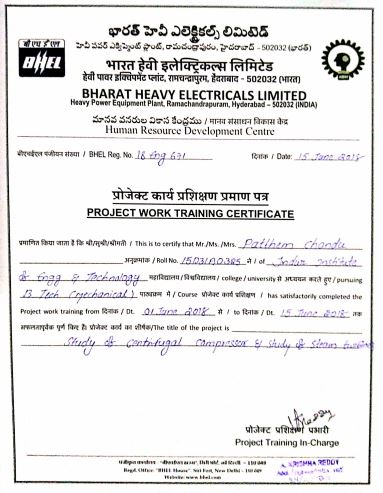 భారత్ హెవీ ఎలెక్ట్రికల్స్ లిమిటెడ్
హెవీ పవర్ ఎక్విప్‌మెంట్ ప్లాంట్, రామచంద్రాపురం, హైదరాబాద్ - 502032 (భారత్)
भारत हेवी इलेक्ट्रिकल्स लिमिटेड
हेवी पावर इक्विपमेंट प्लांट, रामचन्द्रापुरम, हैदराबाद - 502032 (भारत)
బీహెచ్ఈఎల్
BHEL
BHARAT HEAVY ELECTRICALS LIMITED
Heavy Power Equipment Plant, Ramachandrapuram, Hyderabad – 502032 (INDIA)
మానవ వనరుల వికాస కేంద్రము / मानव संसाधन विकास केंद्र
Human Resource Development Centre
बीएचईएल पंजीयन संख्या / BHEL Reg. No. 18 Eng 671 दिनांक / Date: 15 June 2018
प्रोजेक्ट कार्य प्रशिक्षण प्रमाण पत्र
PROJECT WORK TRAINING CERTIFICATE
प्रमाणित किया जाता है कि श्री/सुश्री/श्रीमती / This is to certify that Mr./Ms./Mrs. Chandu
अनुक्रमांक / Roll No. 15D31A0385 से / of Indur Institute
of Engg & Technology महाविद्यालय / विश्वविद्यालय / college / university से अध्ययन करते हुए / pursuing
B Tech (Mechanical) पाठ्यक्रम में / Course प्रोजेक्ट कार्य प्रशिक्षण / has satisfactorily completed the
Project work training from दिनांक / Dt. 01 June 2018 से / to दिनांक / Dt. 15 June 2018 तक
सफलतापूर्वक पूर्ण किए हैं। प्रोजेक्ट कार्य का शीर्षक/The title of the project is
Study of Centrifugal Compressor & Study of Steam
प्रोजेक्ट प्रशिक्षण प्रभारी
Project Training In-Charge
KRISHNA REDDY
Regd. Office: "BHEL House", Siri Fort, New Delhi - 110 049
Website: www.bhel.com